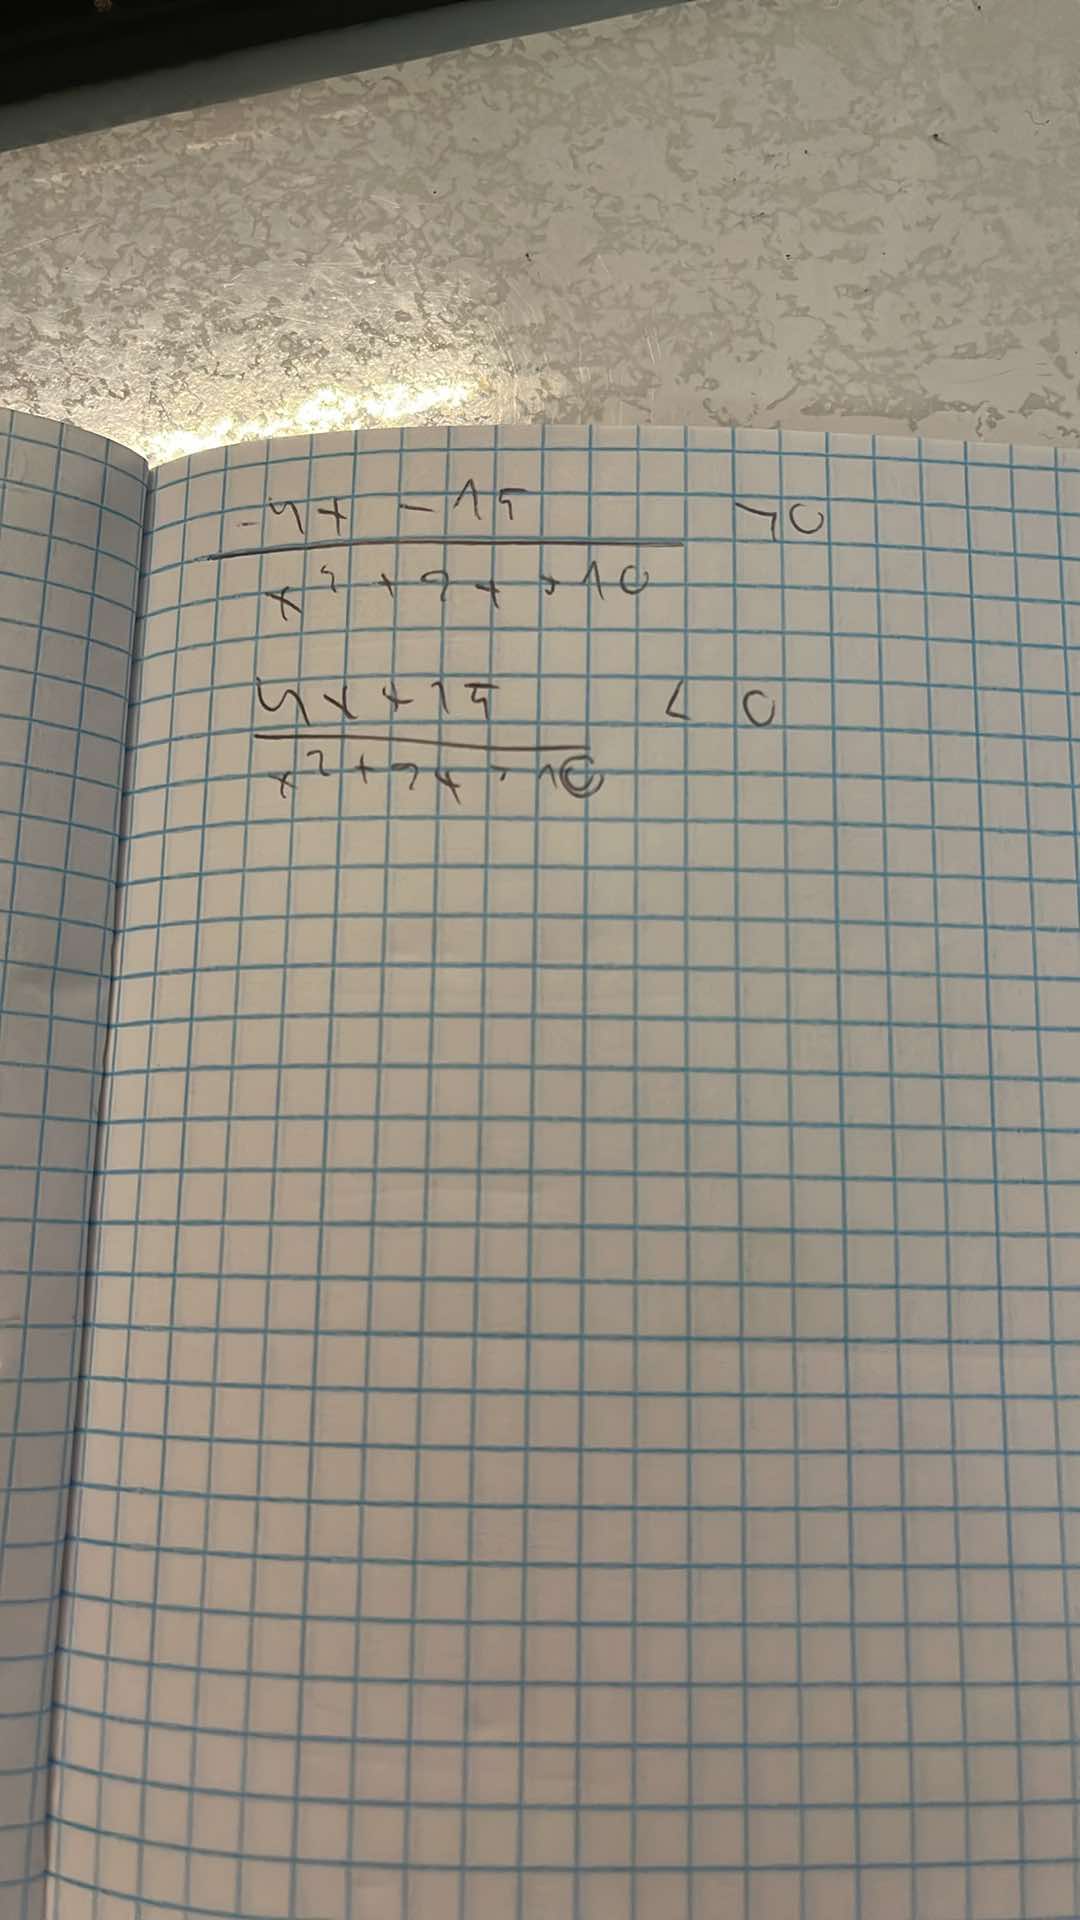 -4x - 15 / x² + 7x + 10 > 0
4x + 15 / x² + 7x + 10 < 0